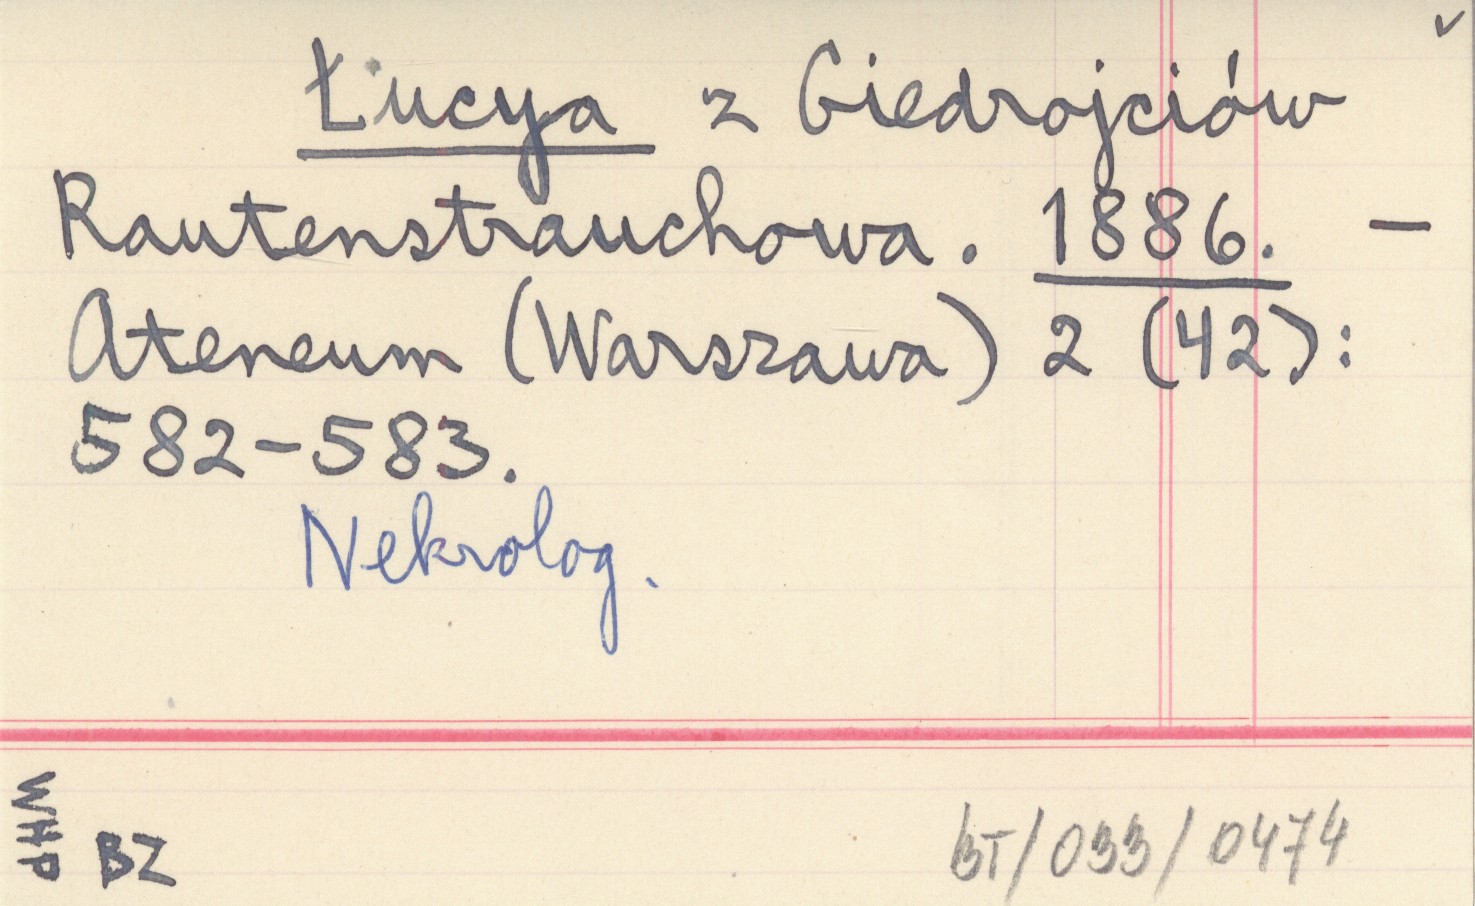 ✓
Łucya z Giedrojciów
Rautenstrauchowa. 1886. –
Ateneum (Warszawa) 2 (42):
582–583.
Nekrolog.
WHP
BZ
BT/033/0474